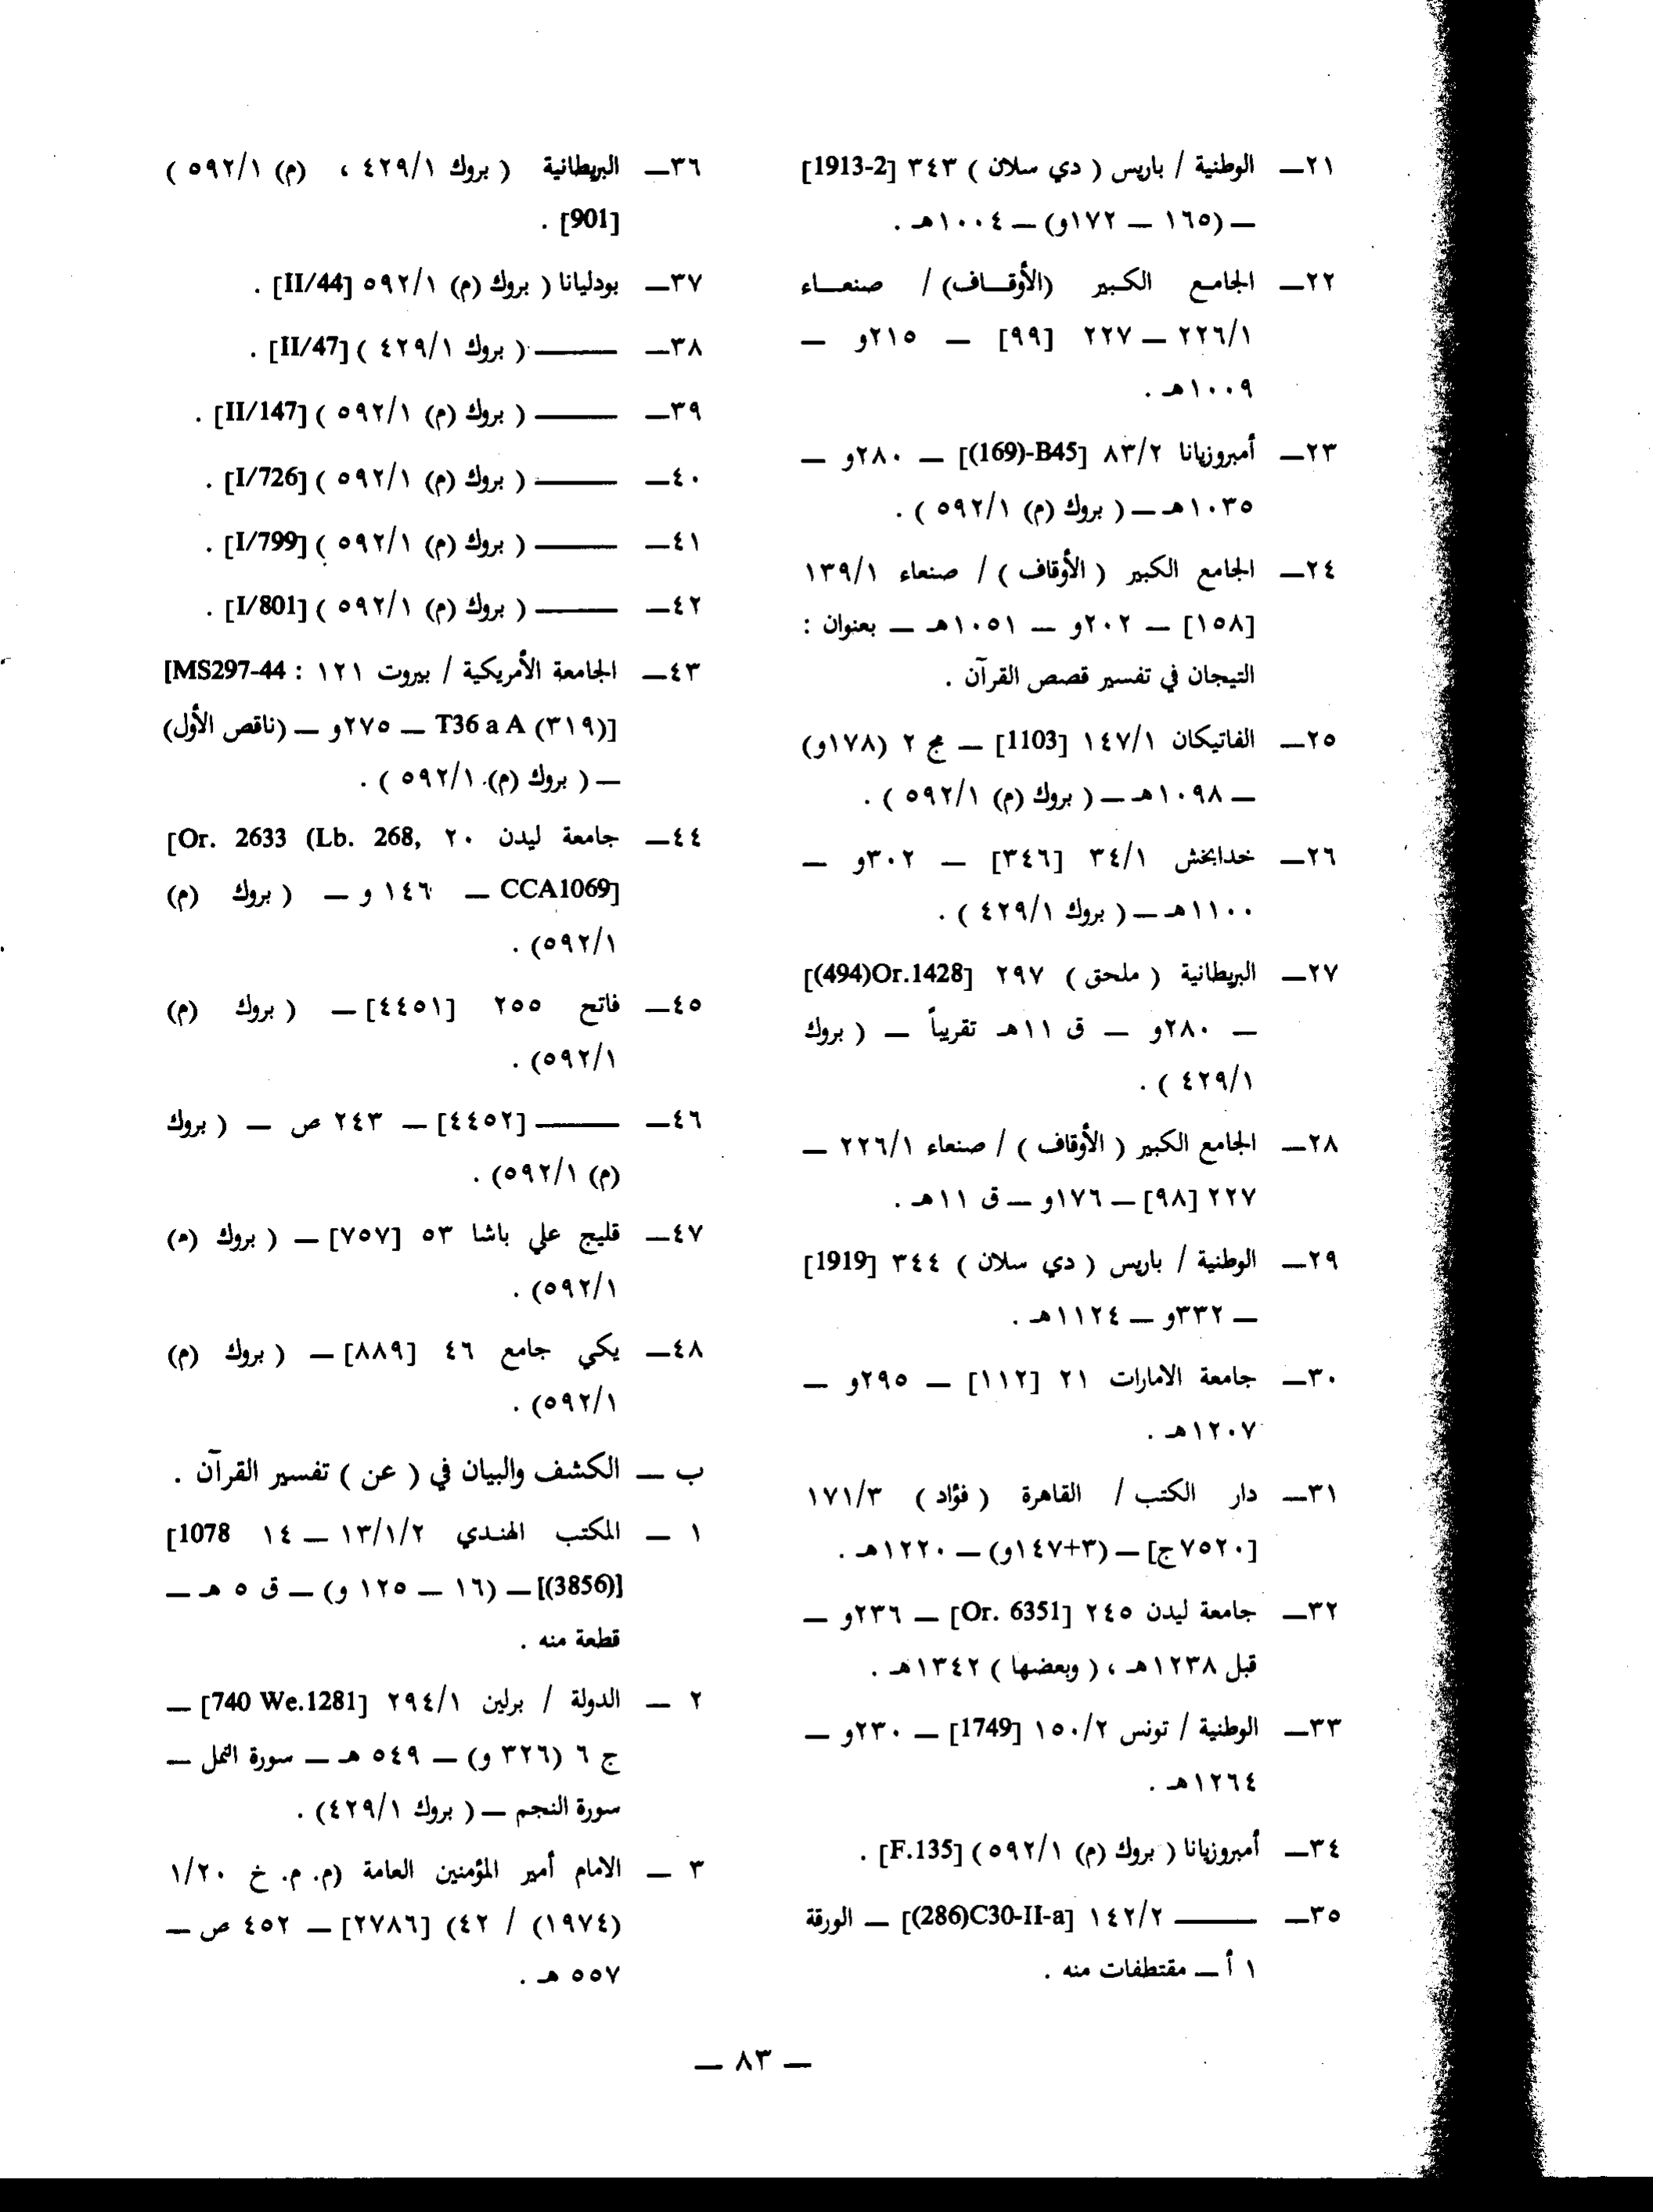 ٢١ــ الوطنية / باريس ( دي سلان ) ٣٤٣ [1913-2]
ــ (١٦٥ ــ ١٧٢و) ــ ١٠٠٤هـ .
٢٢ــ الجامع الكبير (الأوقاف) / صنعاء
٢٢٦/١ ــ ٢٢٧ [٩٩] ــ ٢١٥و ــ
١٠٠٩هـ .
٢٣ــ أمبروزيانا ٨٣/٢ [(169)-B45] ــ ٢٨٠و ــ
١٠٣٥هـ ــ ( بروك (م) ٥٩٢/١ ) .
٢٤ــ الجامع الكبير ( الأوقاف ) / صنعاء ١٣٩/١
[١٥٨] ــ ٢٠٢و ــ ١٠٥١هـ ــ بعنوان :
التيجان في تفسير قصص القرآن .
٢٥ــ الفاتيكان ١٤٧/١ [1103] ــ مج ٢ (١٧٨و)
ــ ١٠٩٨هـ ــ ( بروك (م) ٥٩٢/١ ) .
٢٦ــ خدابخش ٣٤/١ [٣٤٦] ــ ٣٠٢و ــ
١١٠٠هـ ــ ( بروك ٤٢٩/١ ) .
٢٧ــ البريطانية ( ملحق ) ٢٩٧ [(494)Or.1428]
ــ ٢٨٠و ــ ق ١١هـ تقريباً ــ ( بروك
٤٢٩/١ ) .
٢٨ــ الجامع الكبير ( الأوقاف ) / صنعاء ٢٢٦/١ ــ
٢٢٧ [٩٨] ــ ١٧٦و ــ ق ١١هـ .
٢٩ــ الوطنية / باريس ( دي سلان ) ٣٤٤ [1919]
ــ ٣٣٢و ــ ١١٢٤هـ .
٣٠ــ جامعة الامارات ٢١ [١١٢] ــ ٢٩٥و ــ
١٢٠٧هـ .
٣١ــ دار الكتب / القاهرة ( فؤاد ) ١٧١/٣
[٧٥٢٠ج] ــ (٣+١٤٧و) ــ ١٢٢٠هـ .
٣٢ــ جامعة ليدن ٢٤٥ [Or. 6351] ــ ٢٣٦و ــ
قبل ١٢٣٨هـ ، ( وبعضها ) ١٣٤٢هـ .
٣٣ــ الوطنية / تونس ١٥٠/٢ [1749] ــ ٢٣٠و ــ
١٢٦٤هـ .
٣٤ــ أمبروزيانا ( بروك (م) ٥٩٢/١ ) [F.135] .
٣٥ــ ـــــــ ١٤٢/٢ [(286)C30-II-a] ــ الورقة
١ أ ــ مقتطفات منه .
٣٦ــ البريطانية ( بروك ٤٢٩/١ ، (م) ٥٩٢/١ )
[901] .
٣٧ــ بودليانا ( بروك (م) ٥٩٢/١ [II/44] .
٣٨ــ ـــــــ ( بروك ٤٢٩/١ ) [II/47] .
٣٩ــ ـــــــ ( بروك (م) ٥٩٢/١ ) [II/147] .
٤٠ــ ـــــــ ( بروك (م) ٥٩٢/١ ) [I/726] .
٤١ــ ـــــــ ( بروك (م) ٥٩٢/١ ) [I/799] .
٤٢ــ ـــــــ ( بروك (م) ٥٩٢/١ ) [I/801] .
٤٣ــ الجامعة الأمريكية / بيروت ١٢١ [MS297-44 :
T36 a A (٣١٩)] ــ ٢٧٥و ــ (ناقص الأول)
ــ ( بروك (م) ٥٩٢/١ ) .
٤٤ــ جامعة ليدن ٢٠ [Or. 2633 (Lb. 268,
CCA1069] ــ ١٤٦ و ــ ( بروك (م)
٥٩٢/١) .
٤٥ــ فاتح ٢٥٥ [٤٤٥١] ــ ( بروك (م)
٥٩٢/١) .
٤٦ــ ـــــــ [٤٤٥٢] ــ ٢٤٣ ص ــ ( بروك
(م) ٥٩٢/١) .
٤٧ــ قليج علي باشا ٥٣ [٧٥٧] ــ ( بروك (م)
٥٩٢/١) .
٤٨ــ يكي جامع ٤٦ [٨٨٩] ــ ( بروك (م)
٥٩٢/١) .
ب ــ الكشف والبيان في ( عن ) تفسير القرآن .
١ ــ المكتب الهندي ١٣/١/٢ ــ ١٤ [1078
(3856)] ــ (١٦ ــ ١٢٥ و) ــ ق ٥ هـ ــ
قطعة منه .
٢ ــ الدولة / برلين ٢٩٤/١ [740 We.1281] ــ
ج ٦ (٣٢٦ و) ــ ٥٤٩ هـ ــ سورة النمل ــ
سورة النجم ــ ( بروك ٤٢٩/١) .
٣ ــ الامام أمير المؤمنين العامة (م. م. خ ١/٢٠
(١٩٧٤) / ٤٢) [٢٧٨٦] ــ ٤٥٢ ص ــ
٥٥٧ هـ .
ــ ٨٣ ــ